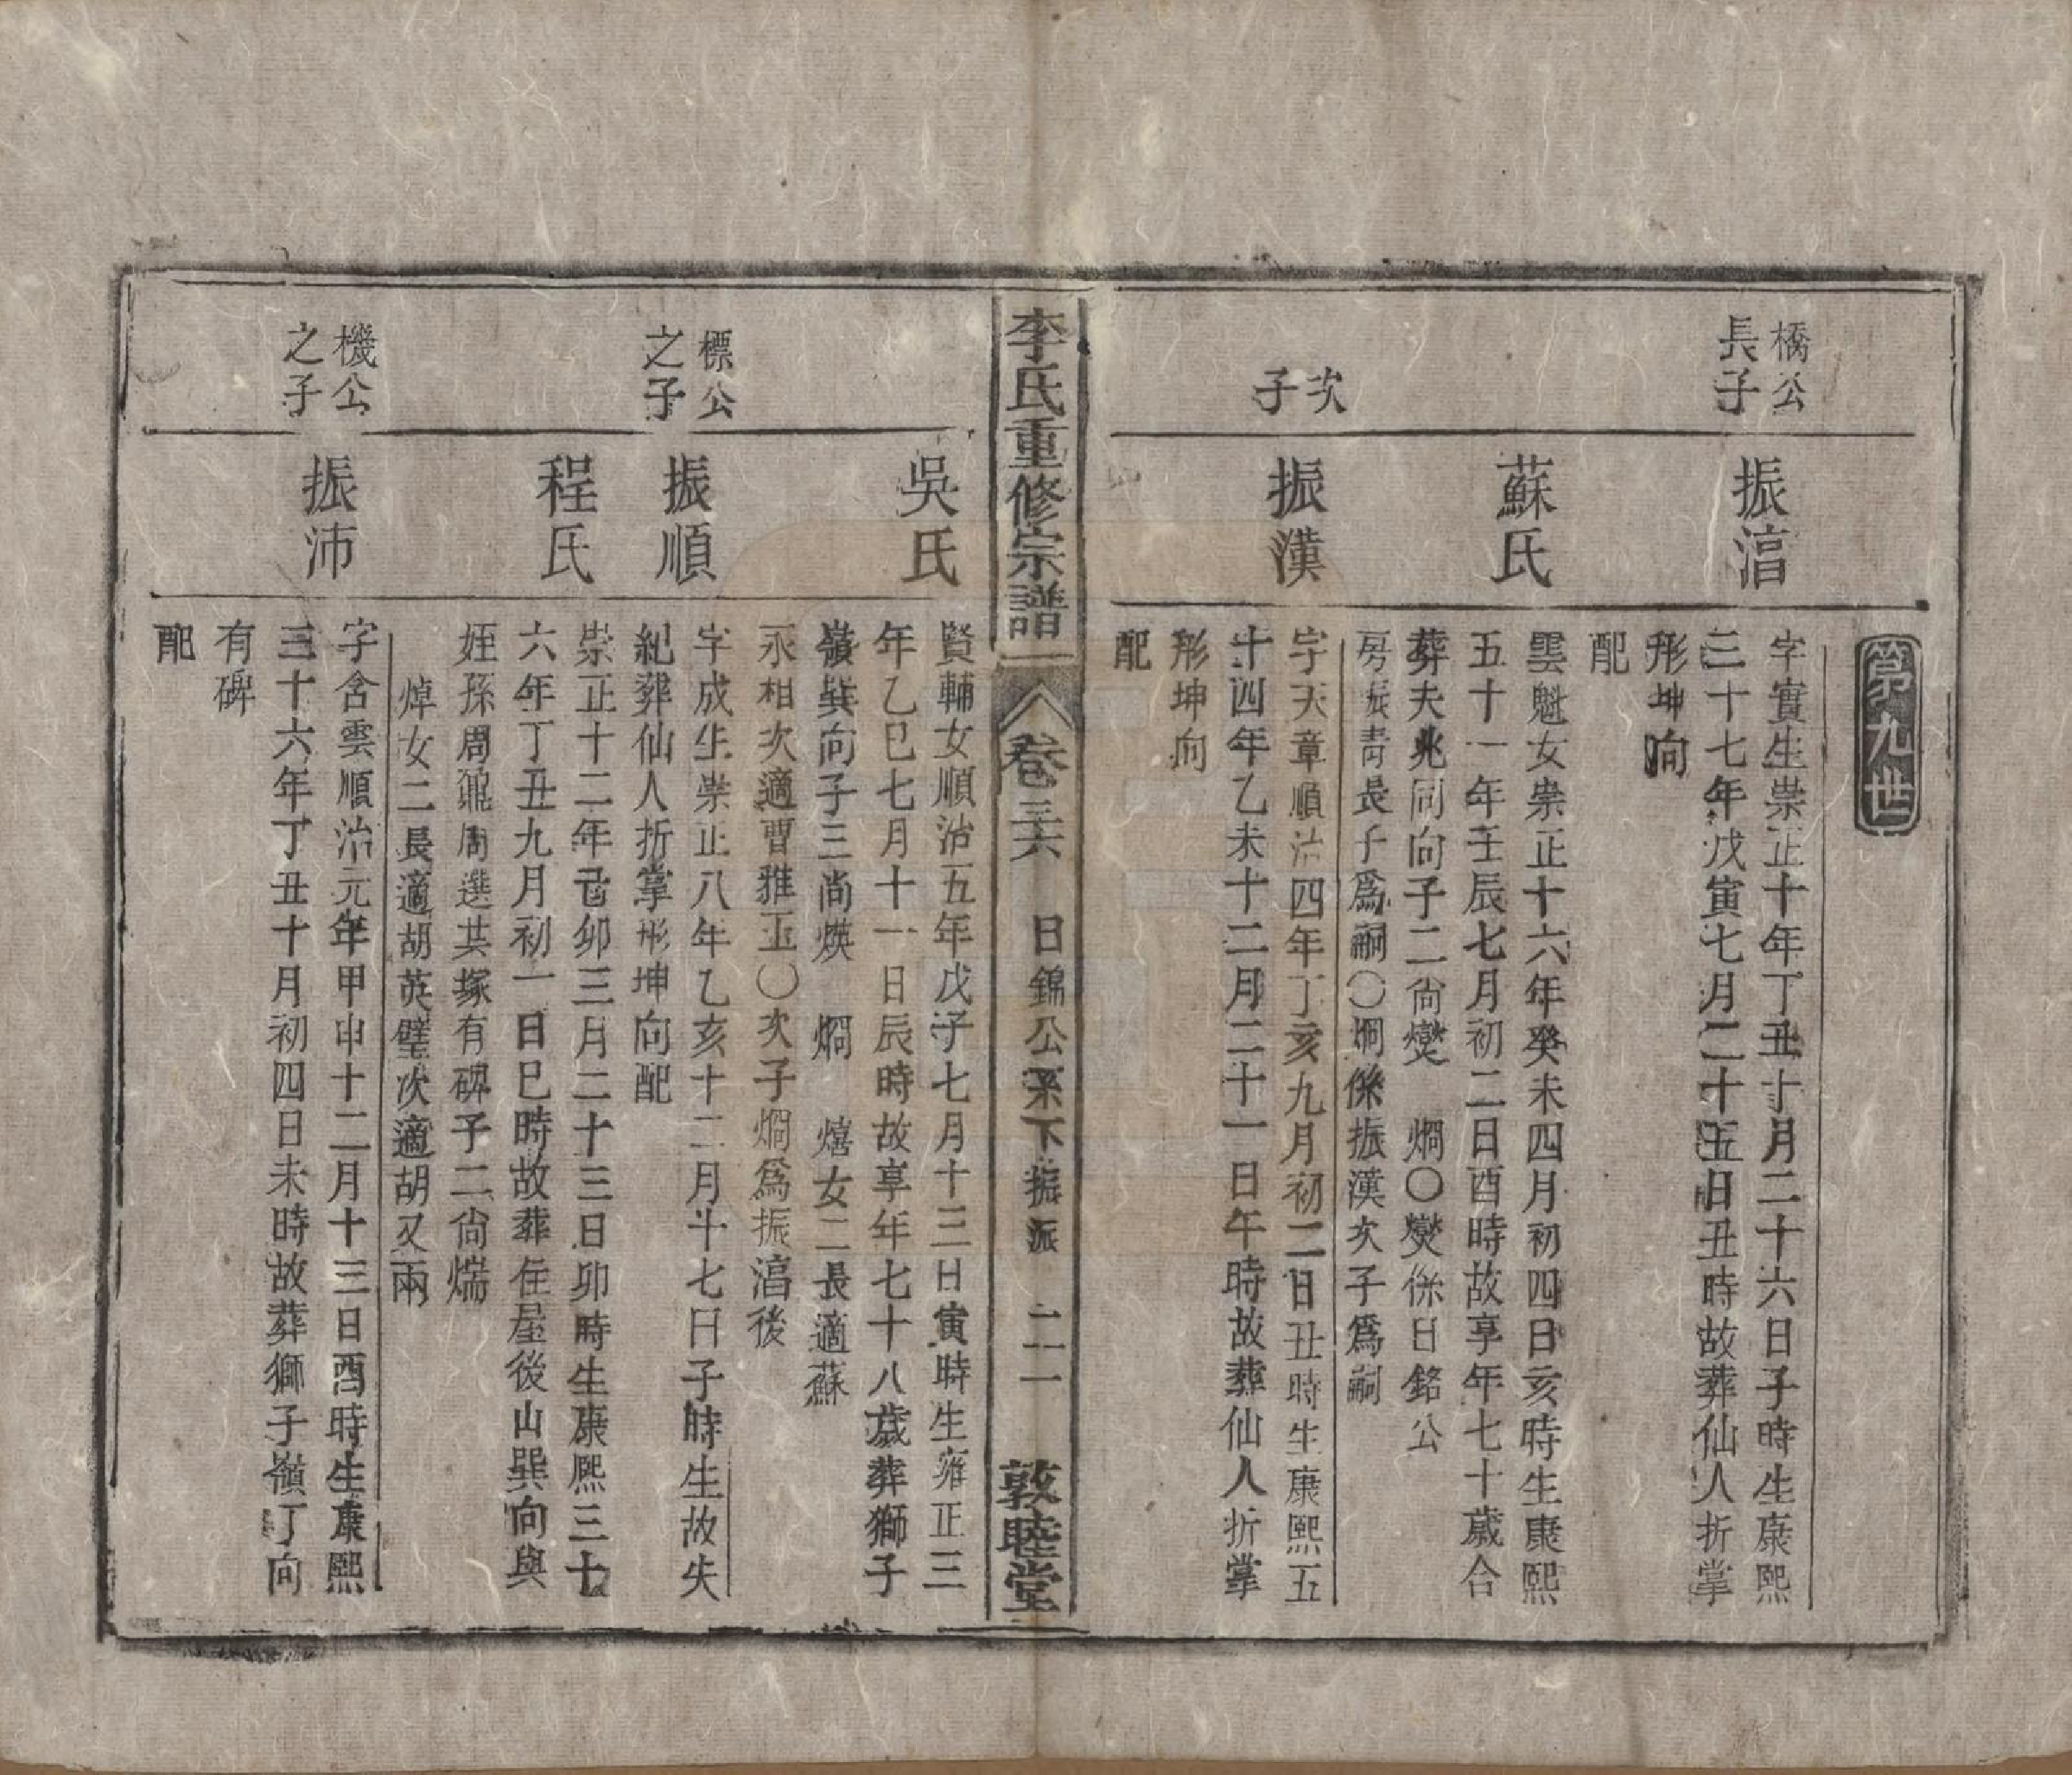 第九世
橋公
長子
振湻
字實生崇正十年丁丑十月二十六日子時生康熙
三十七年戊寅七月二十五日丑時故葬仙人折掌
形坤向
配
蘇氏
雲魁女崇正十六年癸未四月初四日亥時生康熙
五十一年壬辰七月初二日酉時故享年七十歲合
葬夫兆同向子二尙爕 烱〇爕係日銘公
房振靑長子爲嗣〇烱係振漢次子爲嗣
次
子
振漢
字天章順治四年丁亥九月初二日丑時生康熙五
十四年乙未十二月二十一日午時故葬仙人折掌
形坤向
配
李氏重修宗譜
卷三六 日錦公系下振派 二一 敦睦堂
吳氏
賢輔女順治五年戊子七月十三日寅時生雍正三
年乙巳七月十一日辰時故享年七十八歲葬獅子
嶺巽向子三尙煐 烱 熺女二長適蘇
永相次適曹雅玉〇次子烱爲振湻後
標公
之子
振順
字成生崇正八年乙亥十二月十七日子時生故失
紀葬仙人折掌形坤向配
程氏
崇正十二年己卯三月二十三日卯時生康熙三十
六年丁丑九月初一日巳時故葬住屋後山巽向與
姪孫周鼐周選共塚有碑子二尙煓
焯女二長適胡英璧次適胡又兩
機公
之子
振沛
字含雲順治元年甲申十二月十三日酉時生康熙
三十六年丁丑十月初四日未時故葬獅子嶺丁向
有碑
配